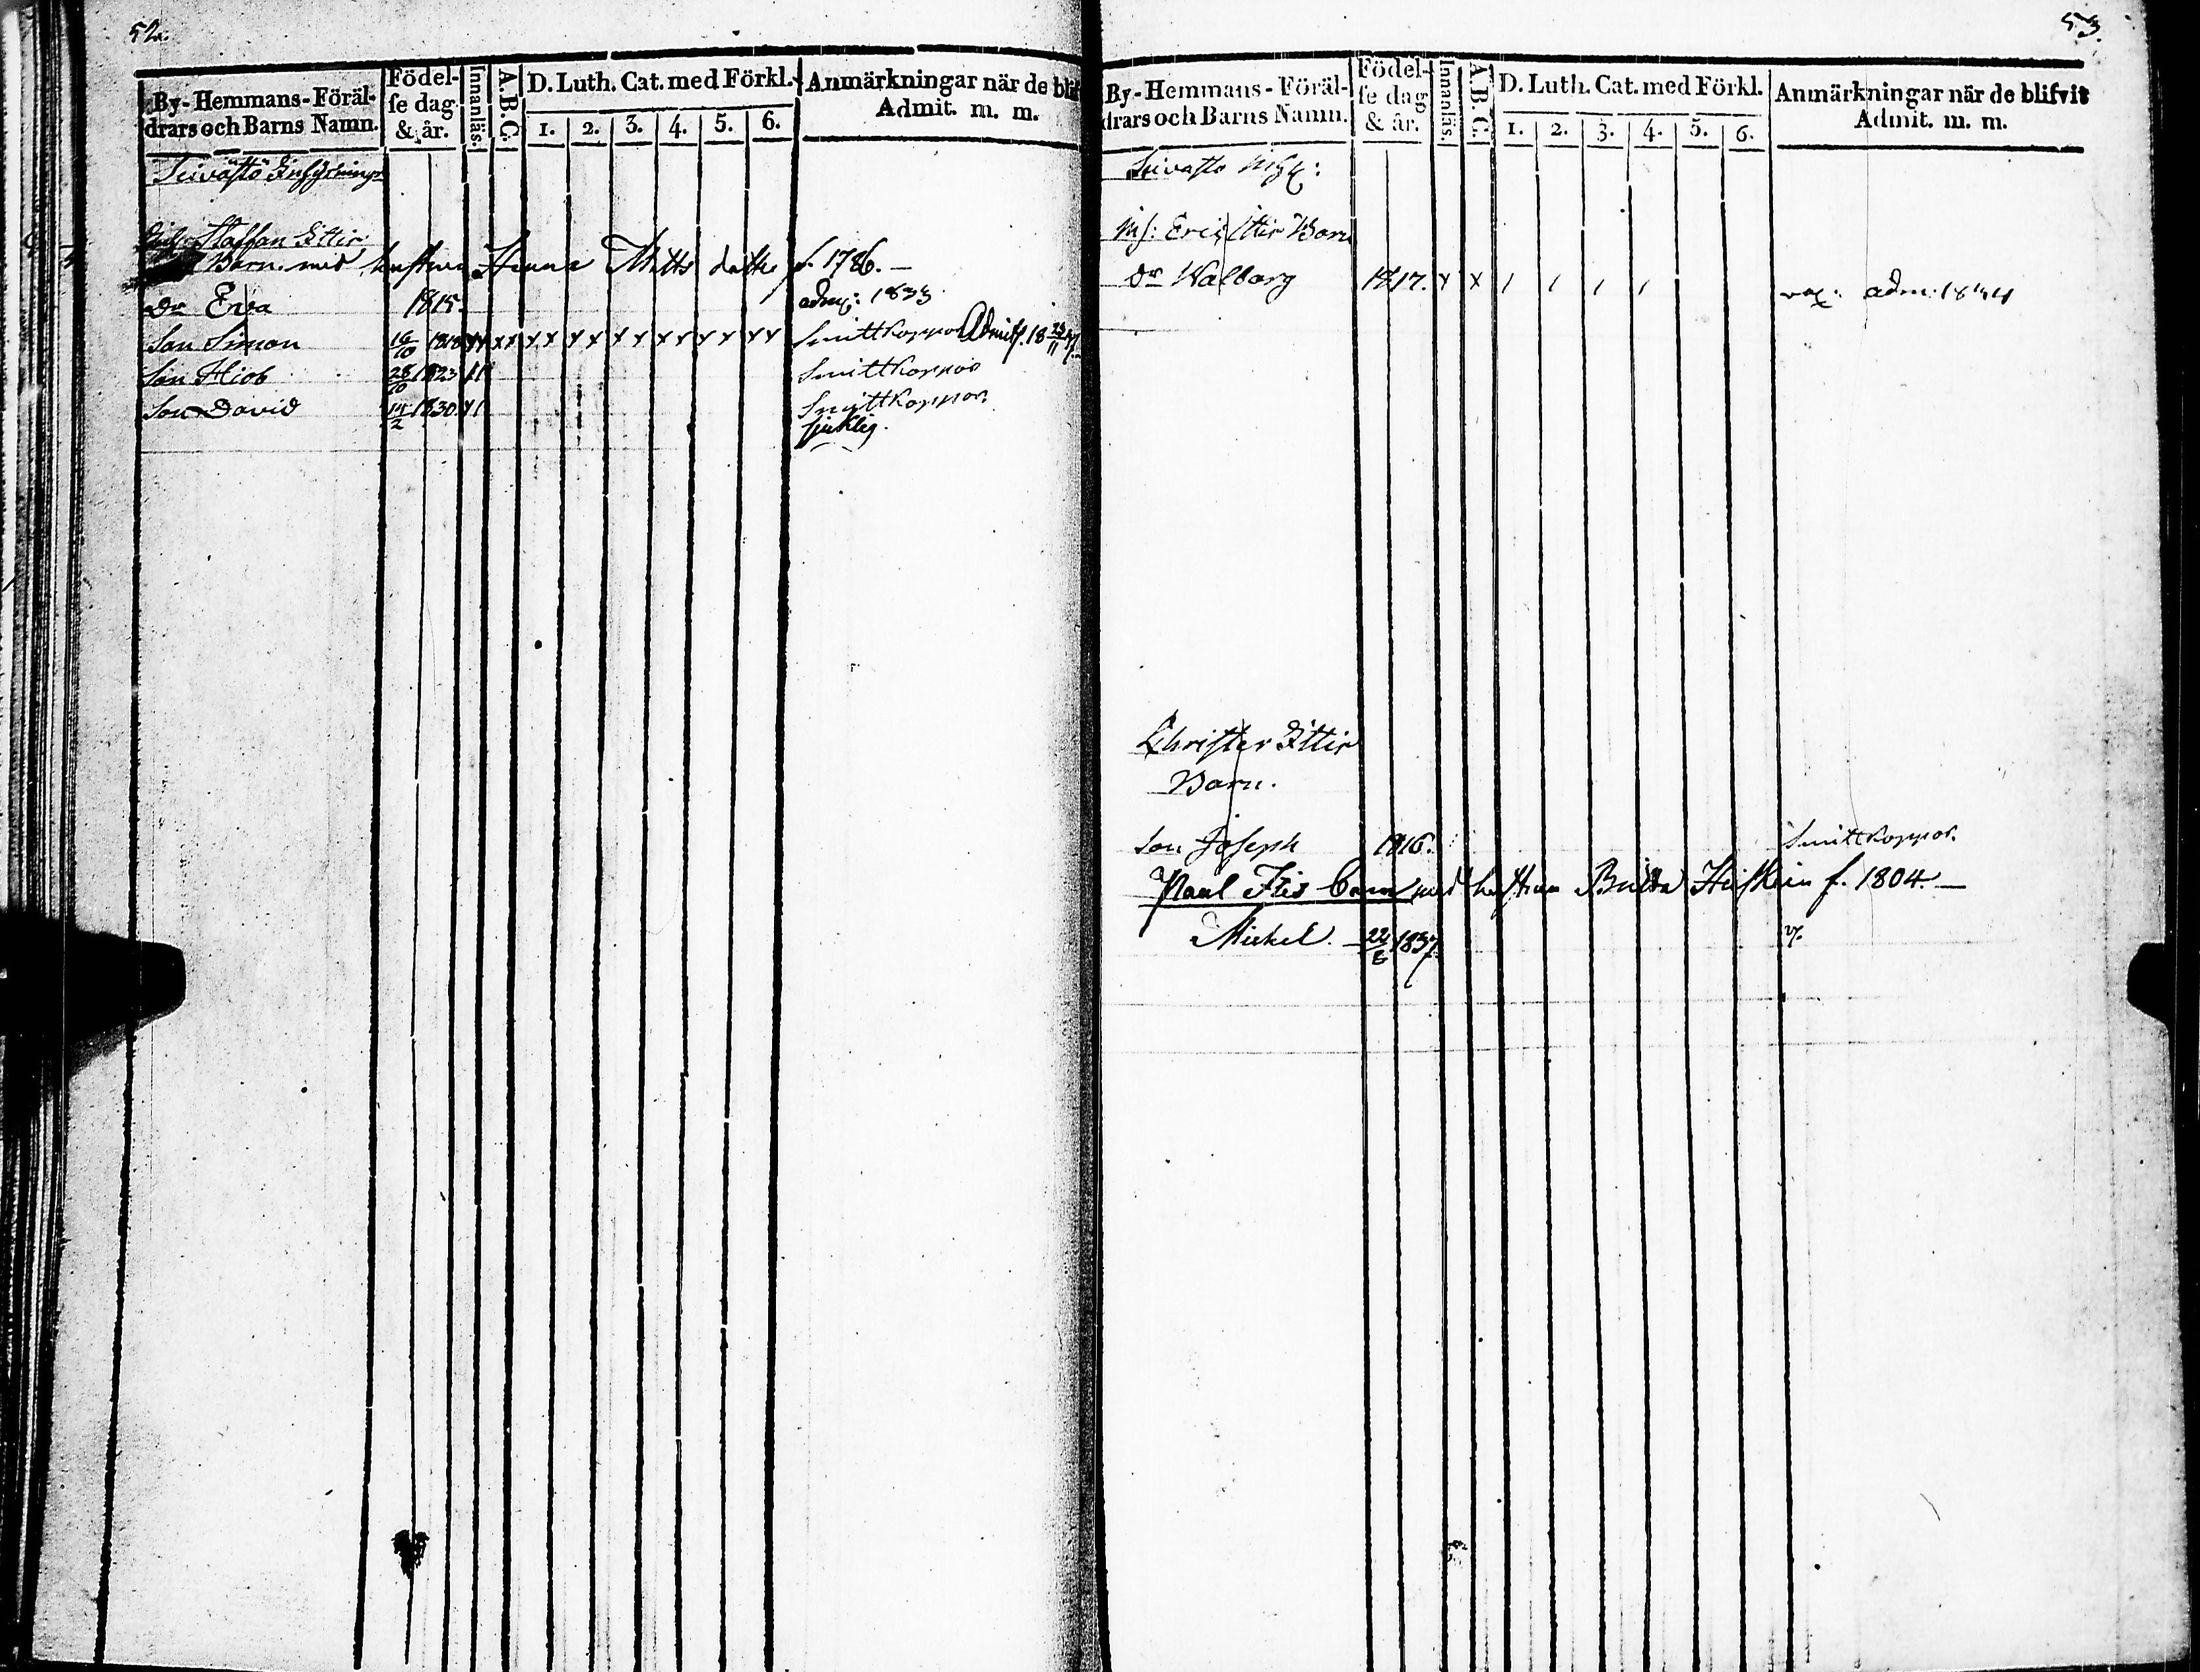 52.
By-Hemmans-Föräl-
drars och Barns Namn.
Födel-
se dag
& år.
Innanläs.
A.B.C.
D. Luth. Cat. med Förkl.
1. 2. 3. 4. 5. 6.
Anmärkningar när de blif
Admit. m. m.
Staffan Ittis
Barn. med hustrun Hanna Matts f. 1786. —
Dr Eva 1815. adm: 1833
Son Simon 16/10 1818 xx xx x x x x x x x x x x x x Smittkoppor Admitt. 18
Son Hiob 28/10 1823 Smittkoppor
Son David 14/2 1830 Smittkoppor.
sjuklig.
53.
By-Hemmans-Föräl-
drars och Barns Namn.
Födel-
se dag
& år.
Innanläs.
A.B.C.
D. Luth. Cat. med Förkl.
1. 2. 3. 4. 5. 6.
Anmärkningar när de blifvit
Admit. m. m.
Eric Ittis Barn
Dr Walborg 1817. x x / / / / vax: adm: 1834
Christer Ittis
Barn.
Son Joseph 1816. Smittkoppor.
Paul Itis barn med hustrun f. 1804. —
Mickel. 1837 v.